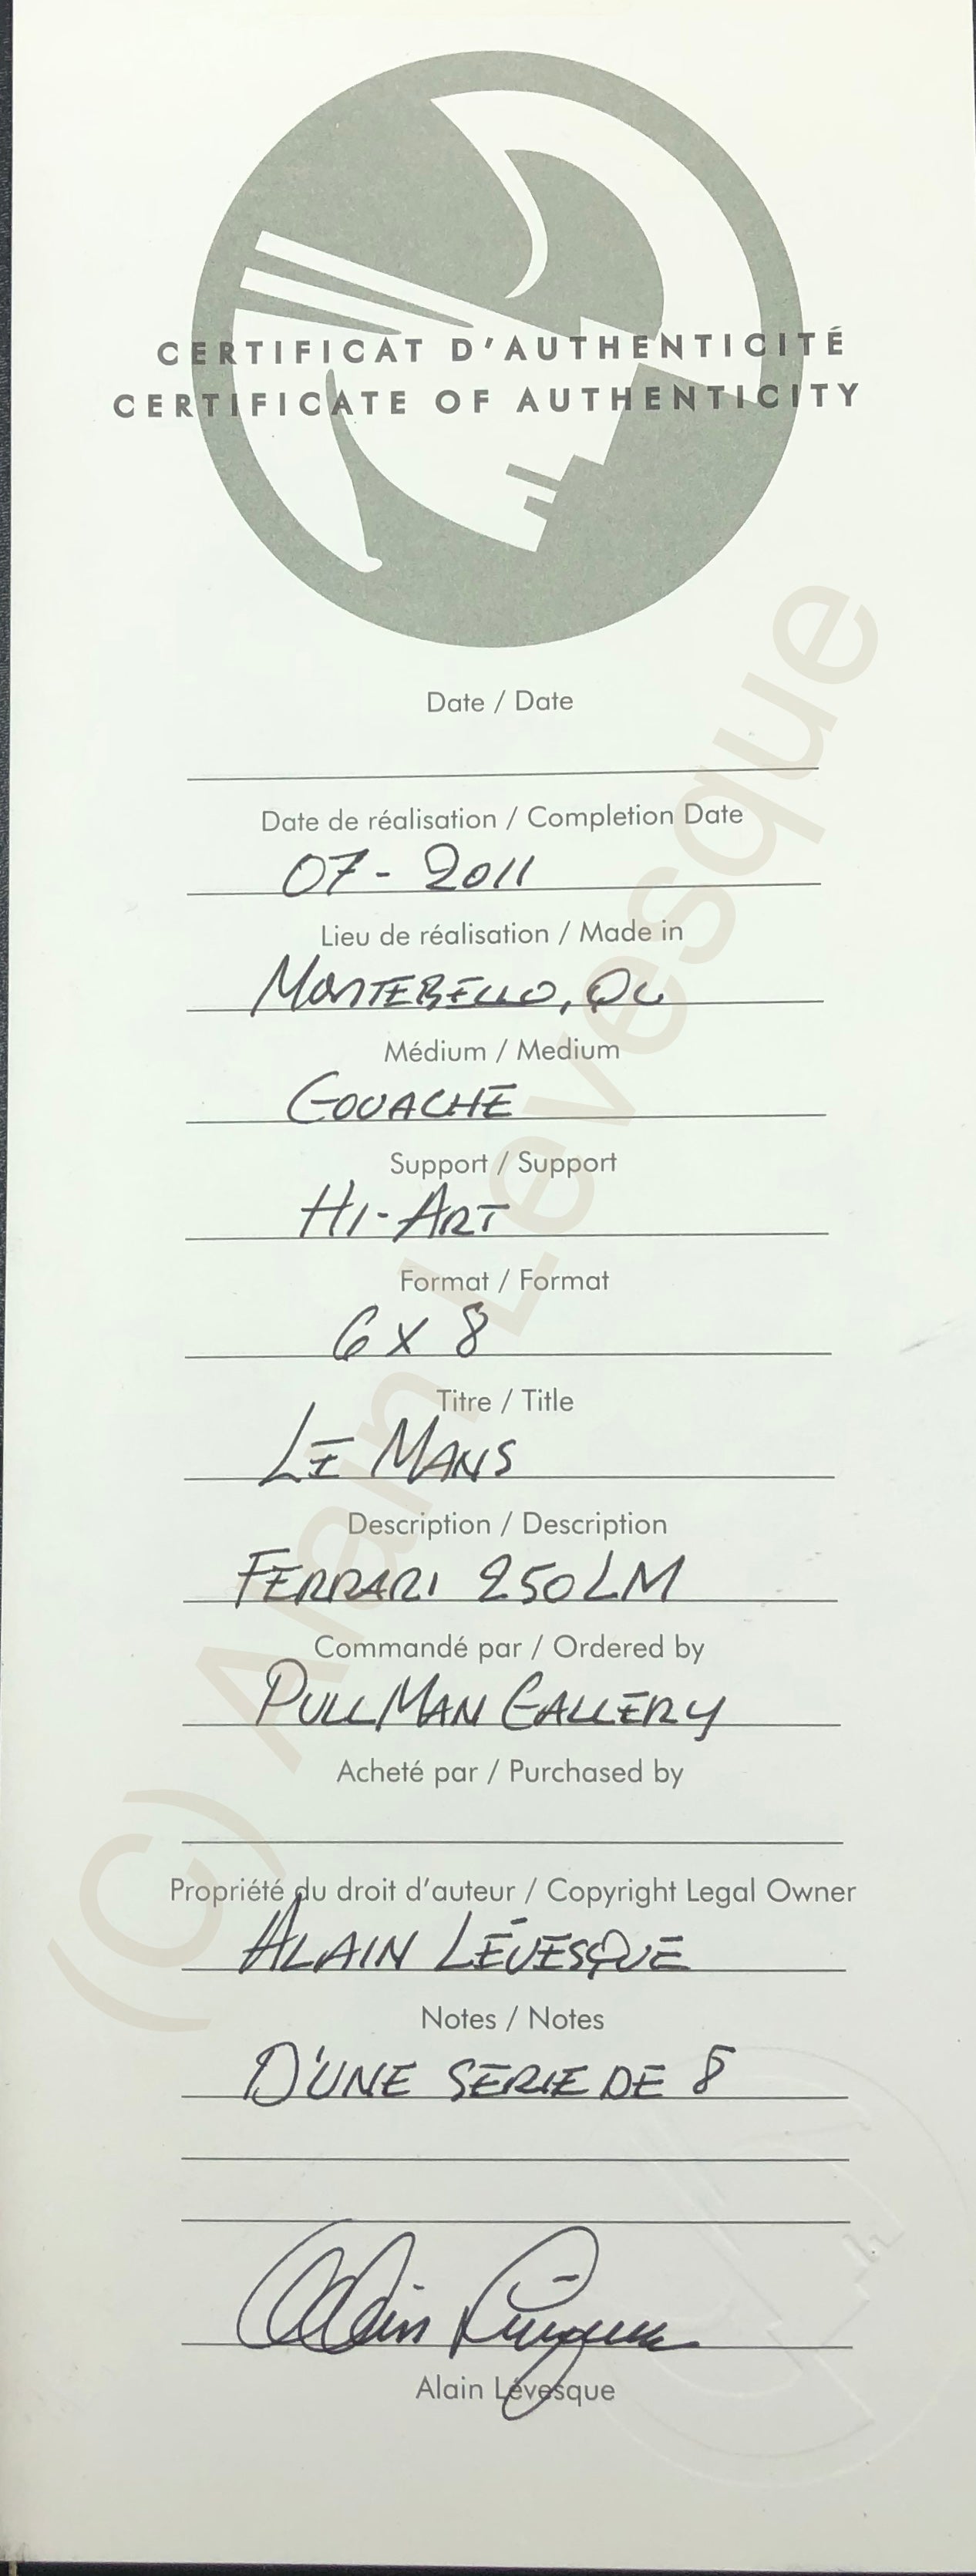 CERTIFICAT D'AUTHENTICITÉ
CERTIFICATE OF AUTHENTICITY
Date / Date
Date de réalisation / Completion Date
07 - 2011
Lieu de réalisation / Made in
MONTEBELLO, QC
Médium / Medium
GOUACHE
Support / Support
HI-ART
Format / Format
6 X 8
Titre / Title
LE MANS
Description / Description
FERRARI 250 LM
Commandé par / Ordered by
PULLMAN GALLERY
Acheté par / Purchased by
Propriété du droit d'auteur / Copyright Legal Owner
ALAIN LÉVESQUE
Notes / Notes
D'UNE SERIE DE 8
Alain Lévesque
Alain Lévesque
(C) Alain Levesque